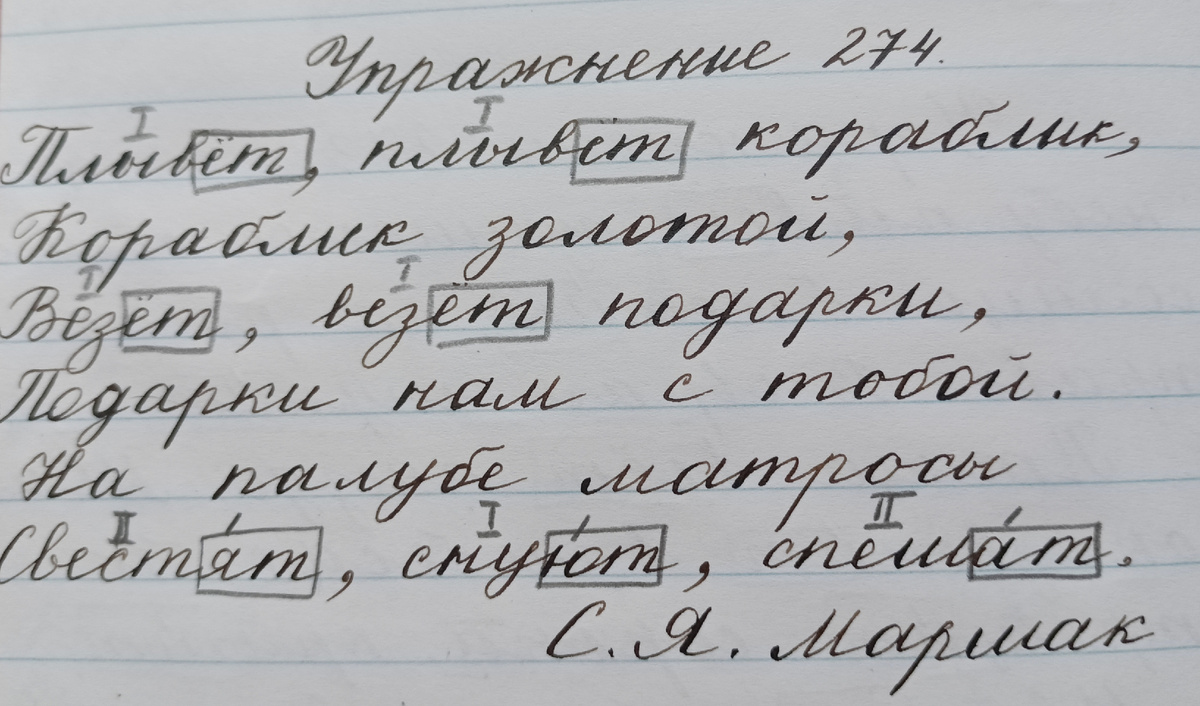 Упражнение 274.
I I
Плывёт, плывёт кораблик,
Кораблик золотой,
I I
Везёт, везёт подарки,
Подарки нам с тобой.
На палубе матросы
II I II
Свестя́т, сн​ую́т, спеша́т.
С. Я. Маршак